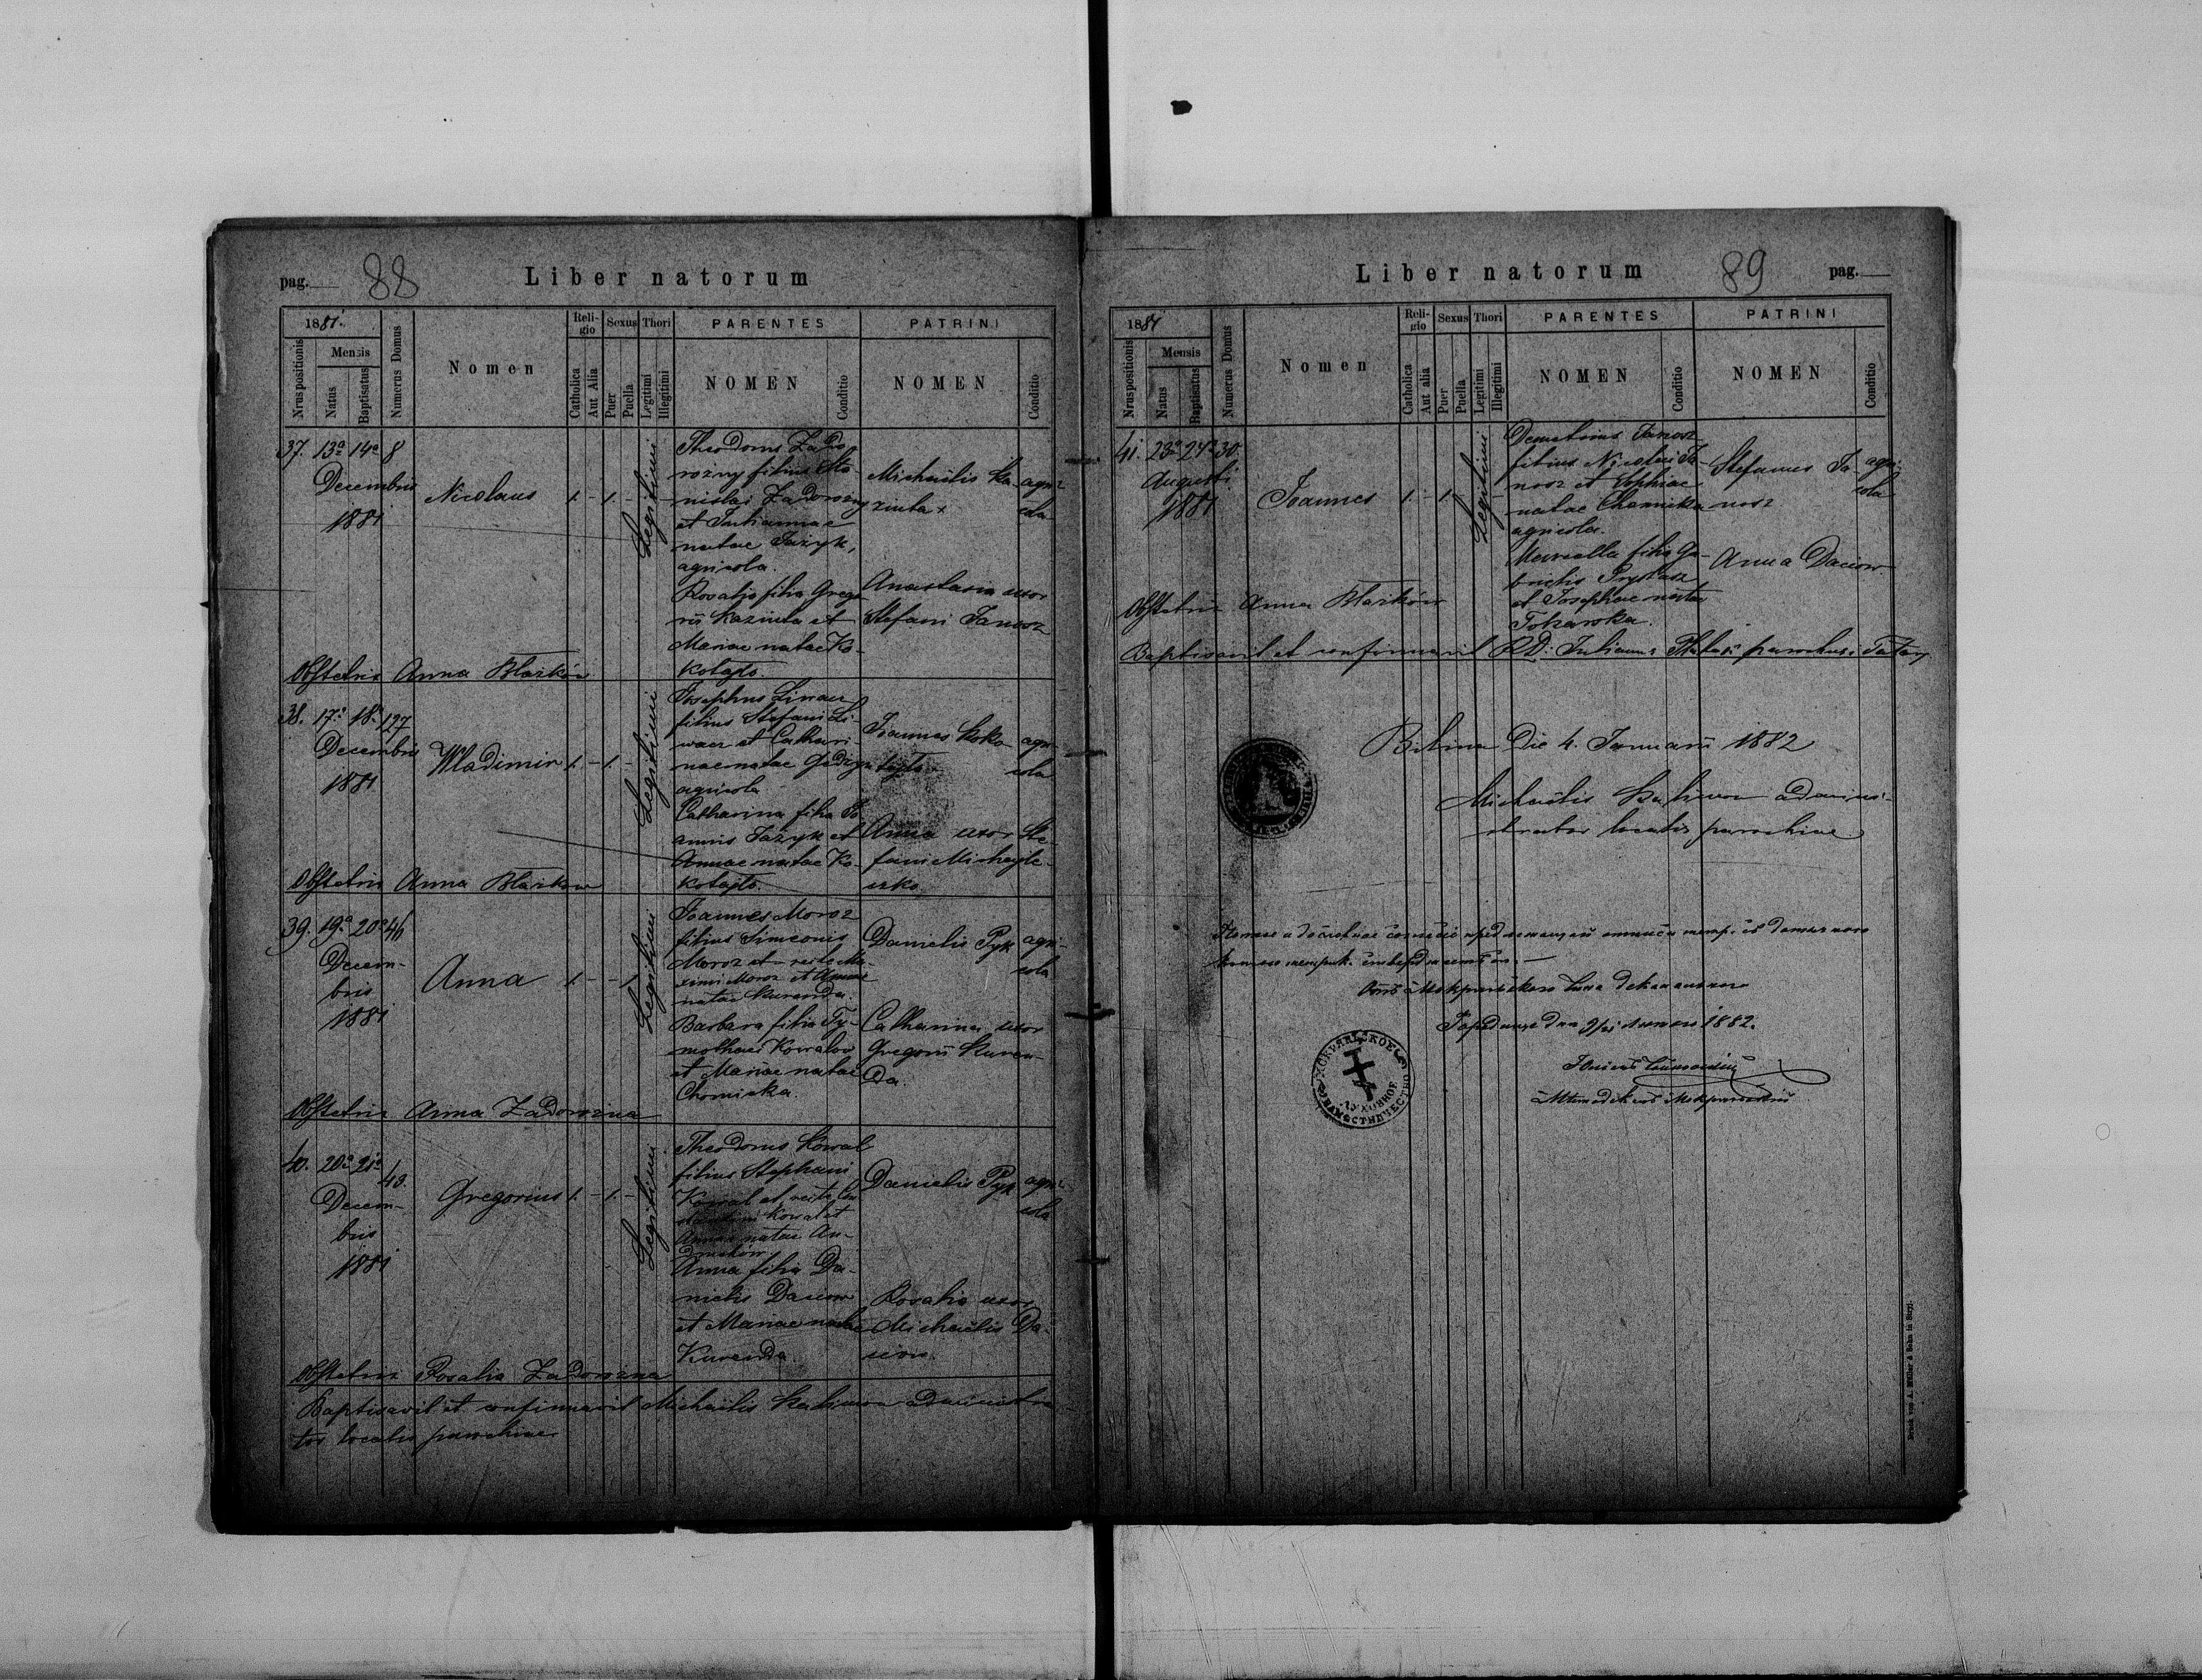 pag. 88
Liber natorum
1881.
Nrus positionis
Mensis
Natus
Baptisatus
Numerus Domus
Nomen
Religio
Catholica
Aut Alia
Sexus
Puer
Puella
Thori
Legitimi
Illegitimi
PARENTES
NOMEN
Conditio
PATRINI
NOMEN
Conditio
37. 13a 14a 8
Decembris
1881
Nicolaus
1. - 1. -
Legitimi
Theodorus Zado-
rożny filius Sta-
nislai Zadorożny
et Juliannae
natae Jażyk,
agricola.
Rosalia filia Grego
rii Kaziuta et
Mariae natae Ko-
kotajło.
Michaëlis Ka-
ziuta x
agri-
cola
Anastasia uxor
Stefani Janosz
Obstetrix Anna Błażków
38. 17a 18a 127
Decembris
1881
Wladimir
1. - 1. -
Legitimi
Josephus Liwacz
filius Stefani Li-
wacz et Cathari-
nae natae
agricola
Catharina filia Jo
annis Jażyk et
Annae natae Ko-
kotajło.
Joannes Koko-
tajło
agri-
cola
Anna uxor Ste-
fani Michajle-
czko
Obstetrix Anna Błażków
39. 19a 20a 46
Decem-
bris
1881
Anna
1. - - 1.
Legitimi
Joannes Moroz
filius Simeonis
Moroz et recte Ma-
ximi Moroz et Annae
natae Kurenda.
Barbara filia Ty-
mothaei Kowalow
et Mariae natae
Chomicka.
Danielis Pyk
agri-
cola
Catharina uxor
Gregorii Kuren-
da.
Obstetrix Anna Zadorożna
40. 20a 21a 43.
Decem-
bris
1881
Gregorius
1. - 1. -
Legitimi
Theodorus Kowal
filius Stephani
Kowal et recte Con
stantini Kowal et
Annae natae An-
druchów
Anna filia Da-
nielis Daciow
et Mariae natae
Kurenda
Danielis Pyk
agri-
cola
Rosalia uxor
Michaëlis Da-
ciow.
Obstetrix Rosalia Zadorożna
Baptisavit et confirmavit Michaëlis administra-
tor localis parochiae
Liber natorum
89 pag.
1881
Nrus positionis
Mensis
Natus
Baptisatus
Numerus Domus
Nomen
Religio
Catholica
Aut alia
Sexus
Puer
Puella
Thori
Legitimi
Illegitimi
PARENTES
NOMEN
Conditio
PATRINI
NOMEN
Conditio
41. 23a 24a 30.
Augusti
1881
Joannes
1. - 1.
Legitimi
Demetrius Janosz
filius Nicolai Ja-
nosz et Sophiae
natae Chomicka
agricola.
Marcella filia Ga-
brielis Prystasz
et Josephae nata
Tokarska.
Stefanus Ja-
nosz
agri-
cola
Anna Daciow
Obstetrix Anna Błażków
Baptisavit et confirmavit R.D. Julianus parochus
Bilina Die 4. Januarii 1882
Michaëlis adminis-
trator localis parochiae.
1882.
Druck von A. Müller & Sohn in Stryj.